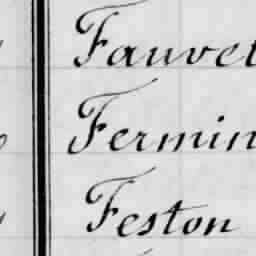 Fauvet
Fermin
Feston